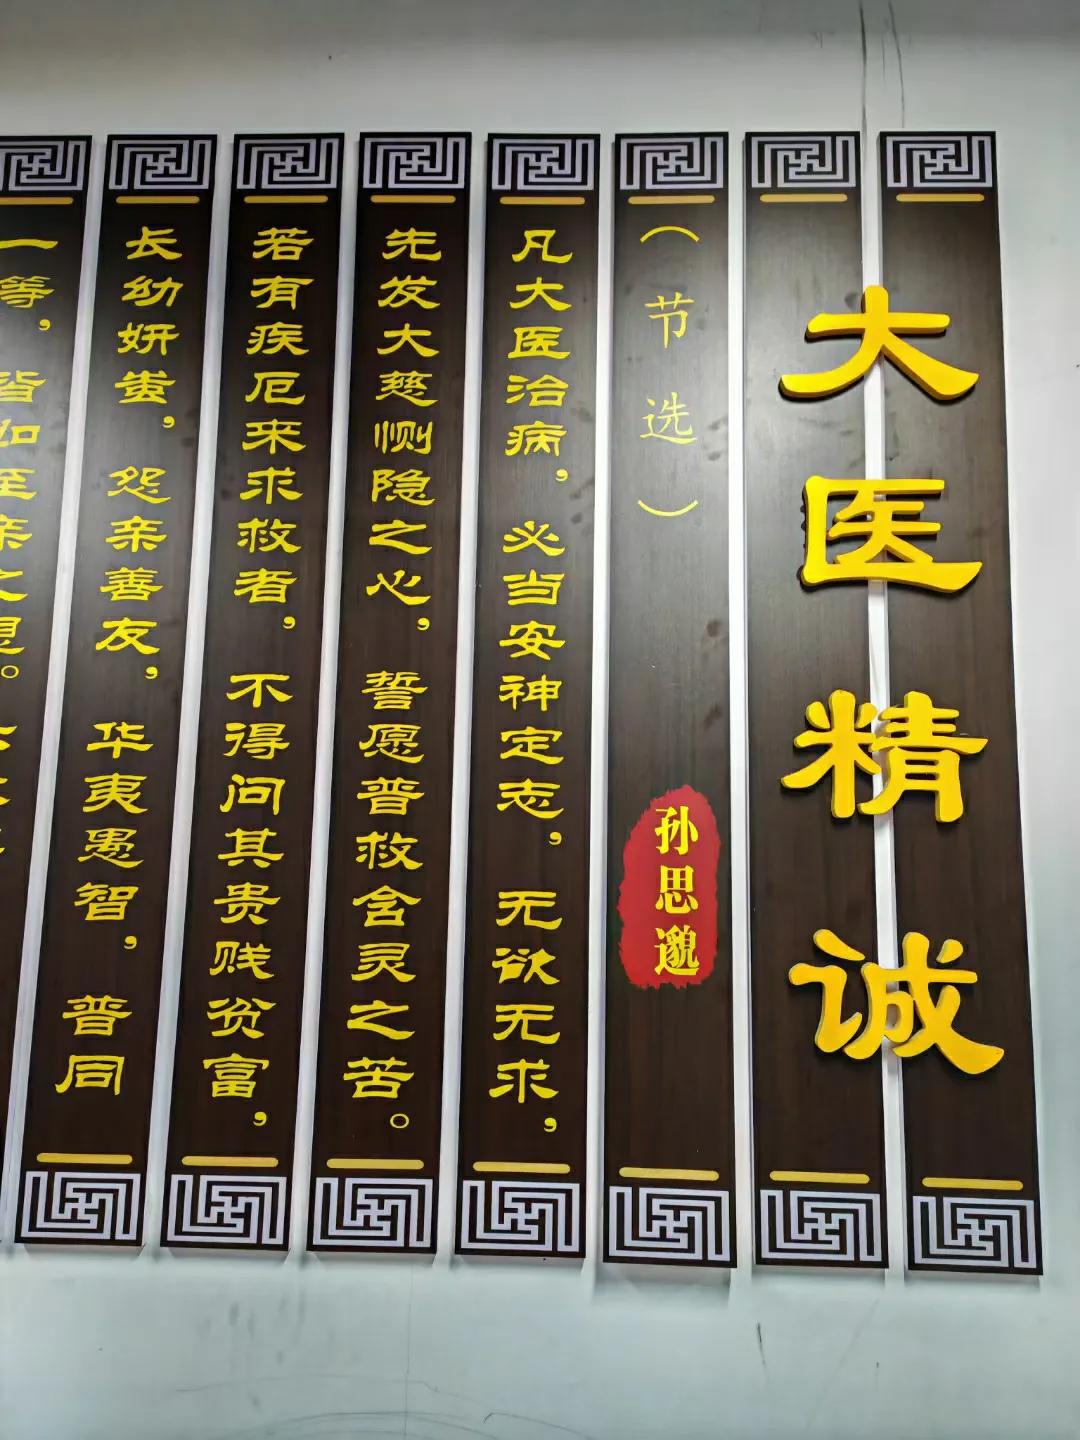 大医精诚
（节选）
孙思邈
凡大医治病，必当安神定志，无欲无求，
先发大慈恻隐之心，誓愿普救含灵之苦。
若有疾厄来求救者，不得问其贵贱贫富，
长幼妍蚩，怨亲善友，华夷愚智，普同
一等，皆如至亲之想。